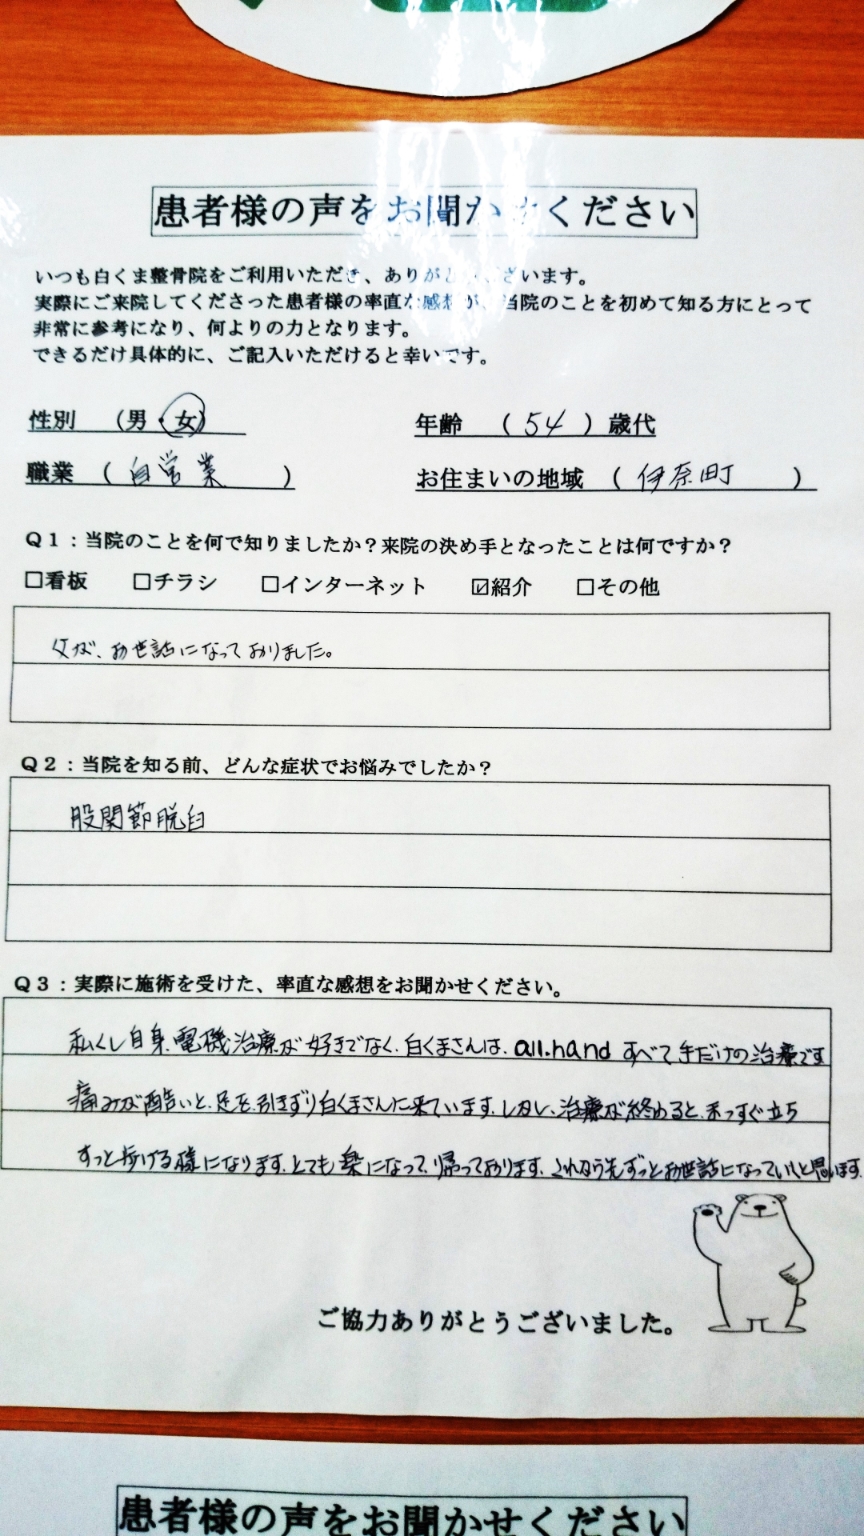 患者様の声をお聞かせください
いつも白くま整骨院をご利用いただき、ありがとうございます。
実際にご来院してくださった患者様の率直な感想が、当院のことを初めて知る方にとって
非常に参考になり、何よりの力となります。
できるだけ具体的に、ご記入いただけると幸いです。
性別 (男・女) 年齢 ( 54 ) 歳代
職業 ( 自営業 ) お住まいの地域 ( 伊奈町 )
Q1:当院のことを何で知りましたか?来院の決め手となったことは何ですか?
□看板 □チラシ □インターネット ☑紹介 □その他
父が、お世話になっておりました。
Q2:当院を知る前、どんな症状でお悩みでしたか?
股関節脱臼
Q3:実際に施術を受けた、率直な感想をお聞かせください。
私くし自身、電機治療が好きでなく、白くまさんは、all.hand すべて手だけの治療です
痛みが酷いと、足を引きずり白くまさんに来ています。しかし、治療が終めると、まっすぐ立ち
すっと歩ける様になります。とても楽になって、帰っております。これから先ずっとお世話になっていくと思います。
ご協力ありがとうございました。
患者様の声をお聞かせください